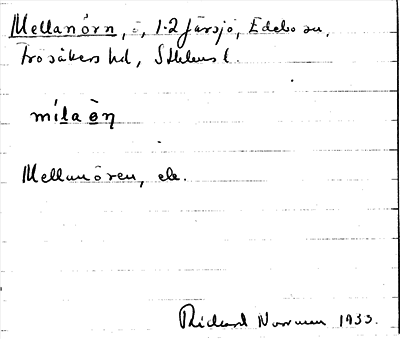 Mellanörn, ö, 1-2 Järsjö, Edebo sn,
Frösåkers hd, Sthlms l.
mílaòn
Mellanören, ek.
Rickard Norman 1933.